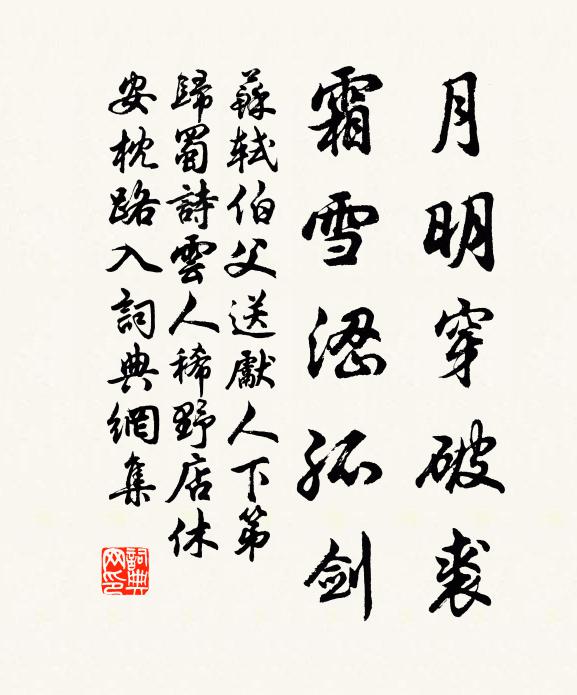 月明穿破裘
霜雪澀孤剑
蘇軾伯父送獻人下第
歸蜀詩雲人稀野店休
安枕路入詞典網集
詞典网印